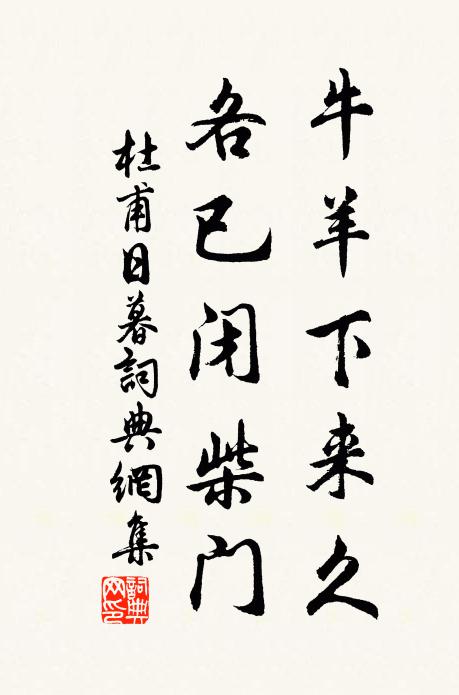 牛羊下来久
各已闭柴门
杜甫日暮詞典網集
詞典網印